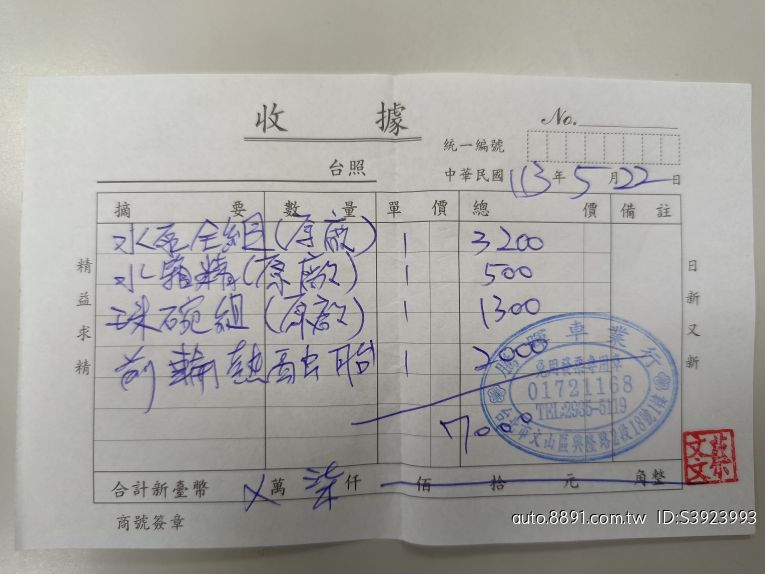 收據
No.
統一編號
台照
中華民國113年5月22日
摘要 數量 單價 總價 備註
水泵全組(原廠) 1 3200
水箱精(原廠) 1 500
珠碗組(原廠) 1 1300
前輪熱融胎 1 2000
7000
精益求精
日新又新
車業行
免用發票專用章
01721168
TEL:2935-5119
台北市文山區興隆路2段18號1樓
合計新臺幣 乂萬柒仟 佰 拾 元 角整
商號簽章
auto.8891.com.tw ID:S3923993